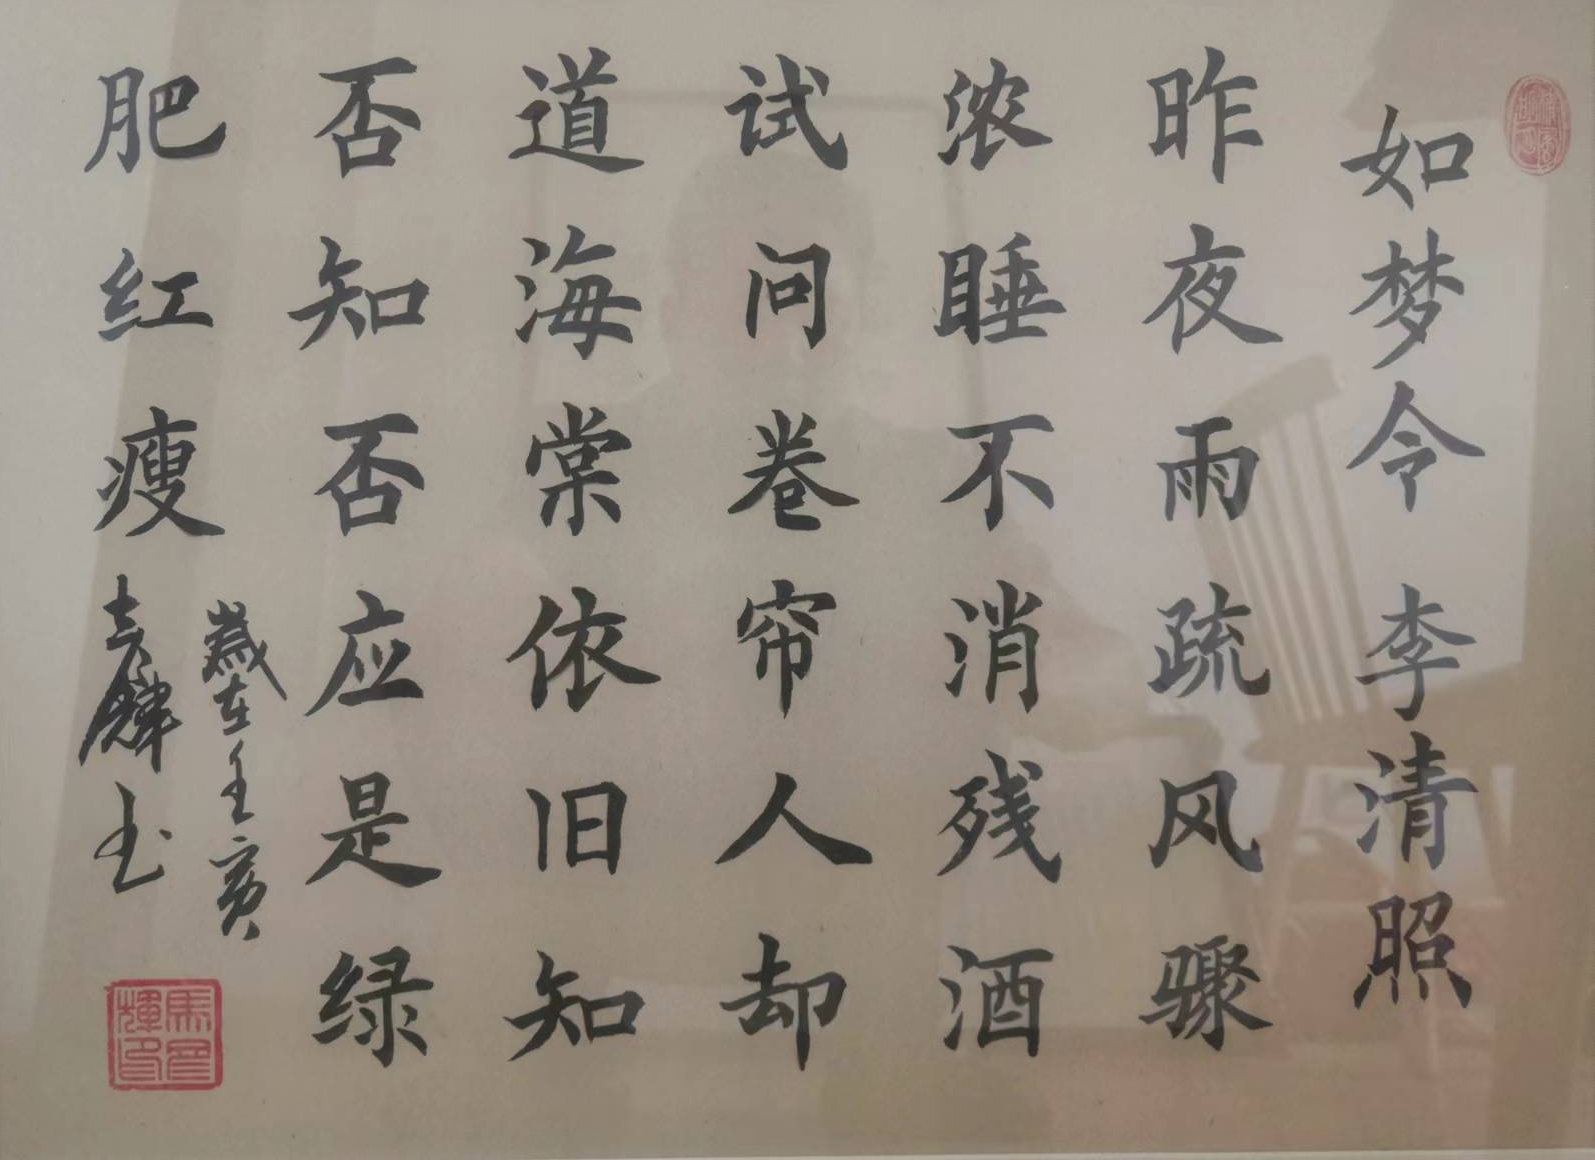 如梦令 李清照
昨夜雨疏风骤
浓睡不消残酒
试问卷帘人却
道海棠依旧知
否知否应是绿
肥红瘦
岁在壬寅
书